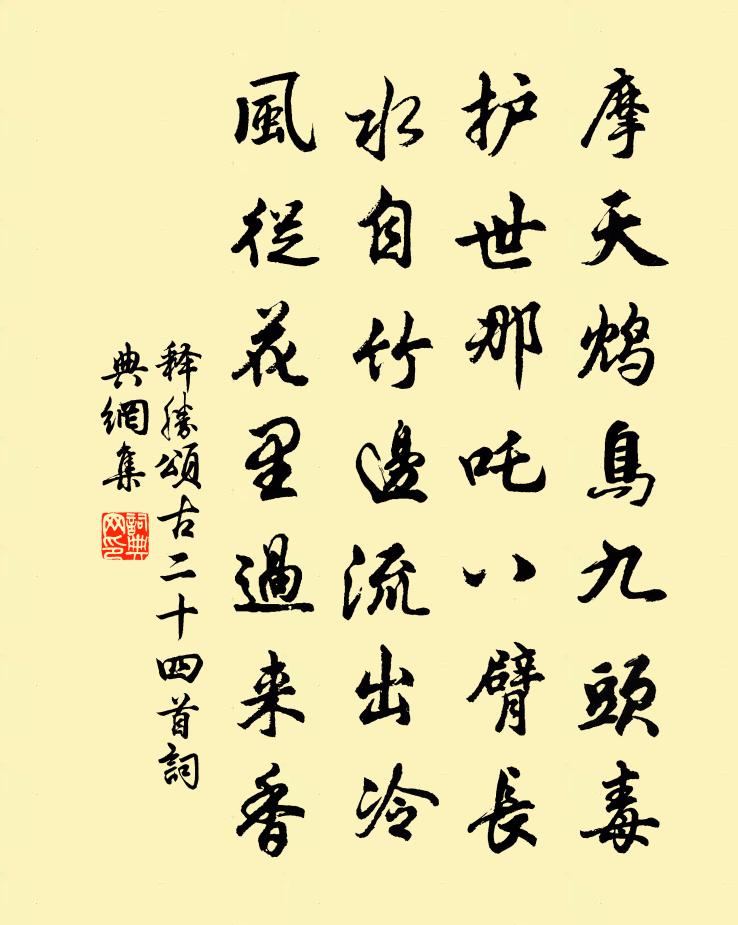 摩天鴆鳥九頭毒
护世那吒八臂長
水自竹邊流出冷
風從花里過来香
释勝頌古二十四首詞
典網集
詞典网印